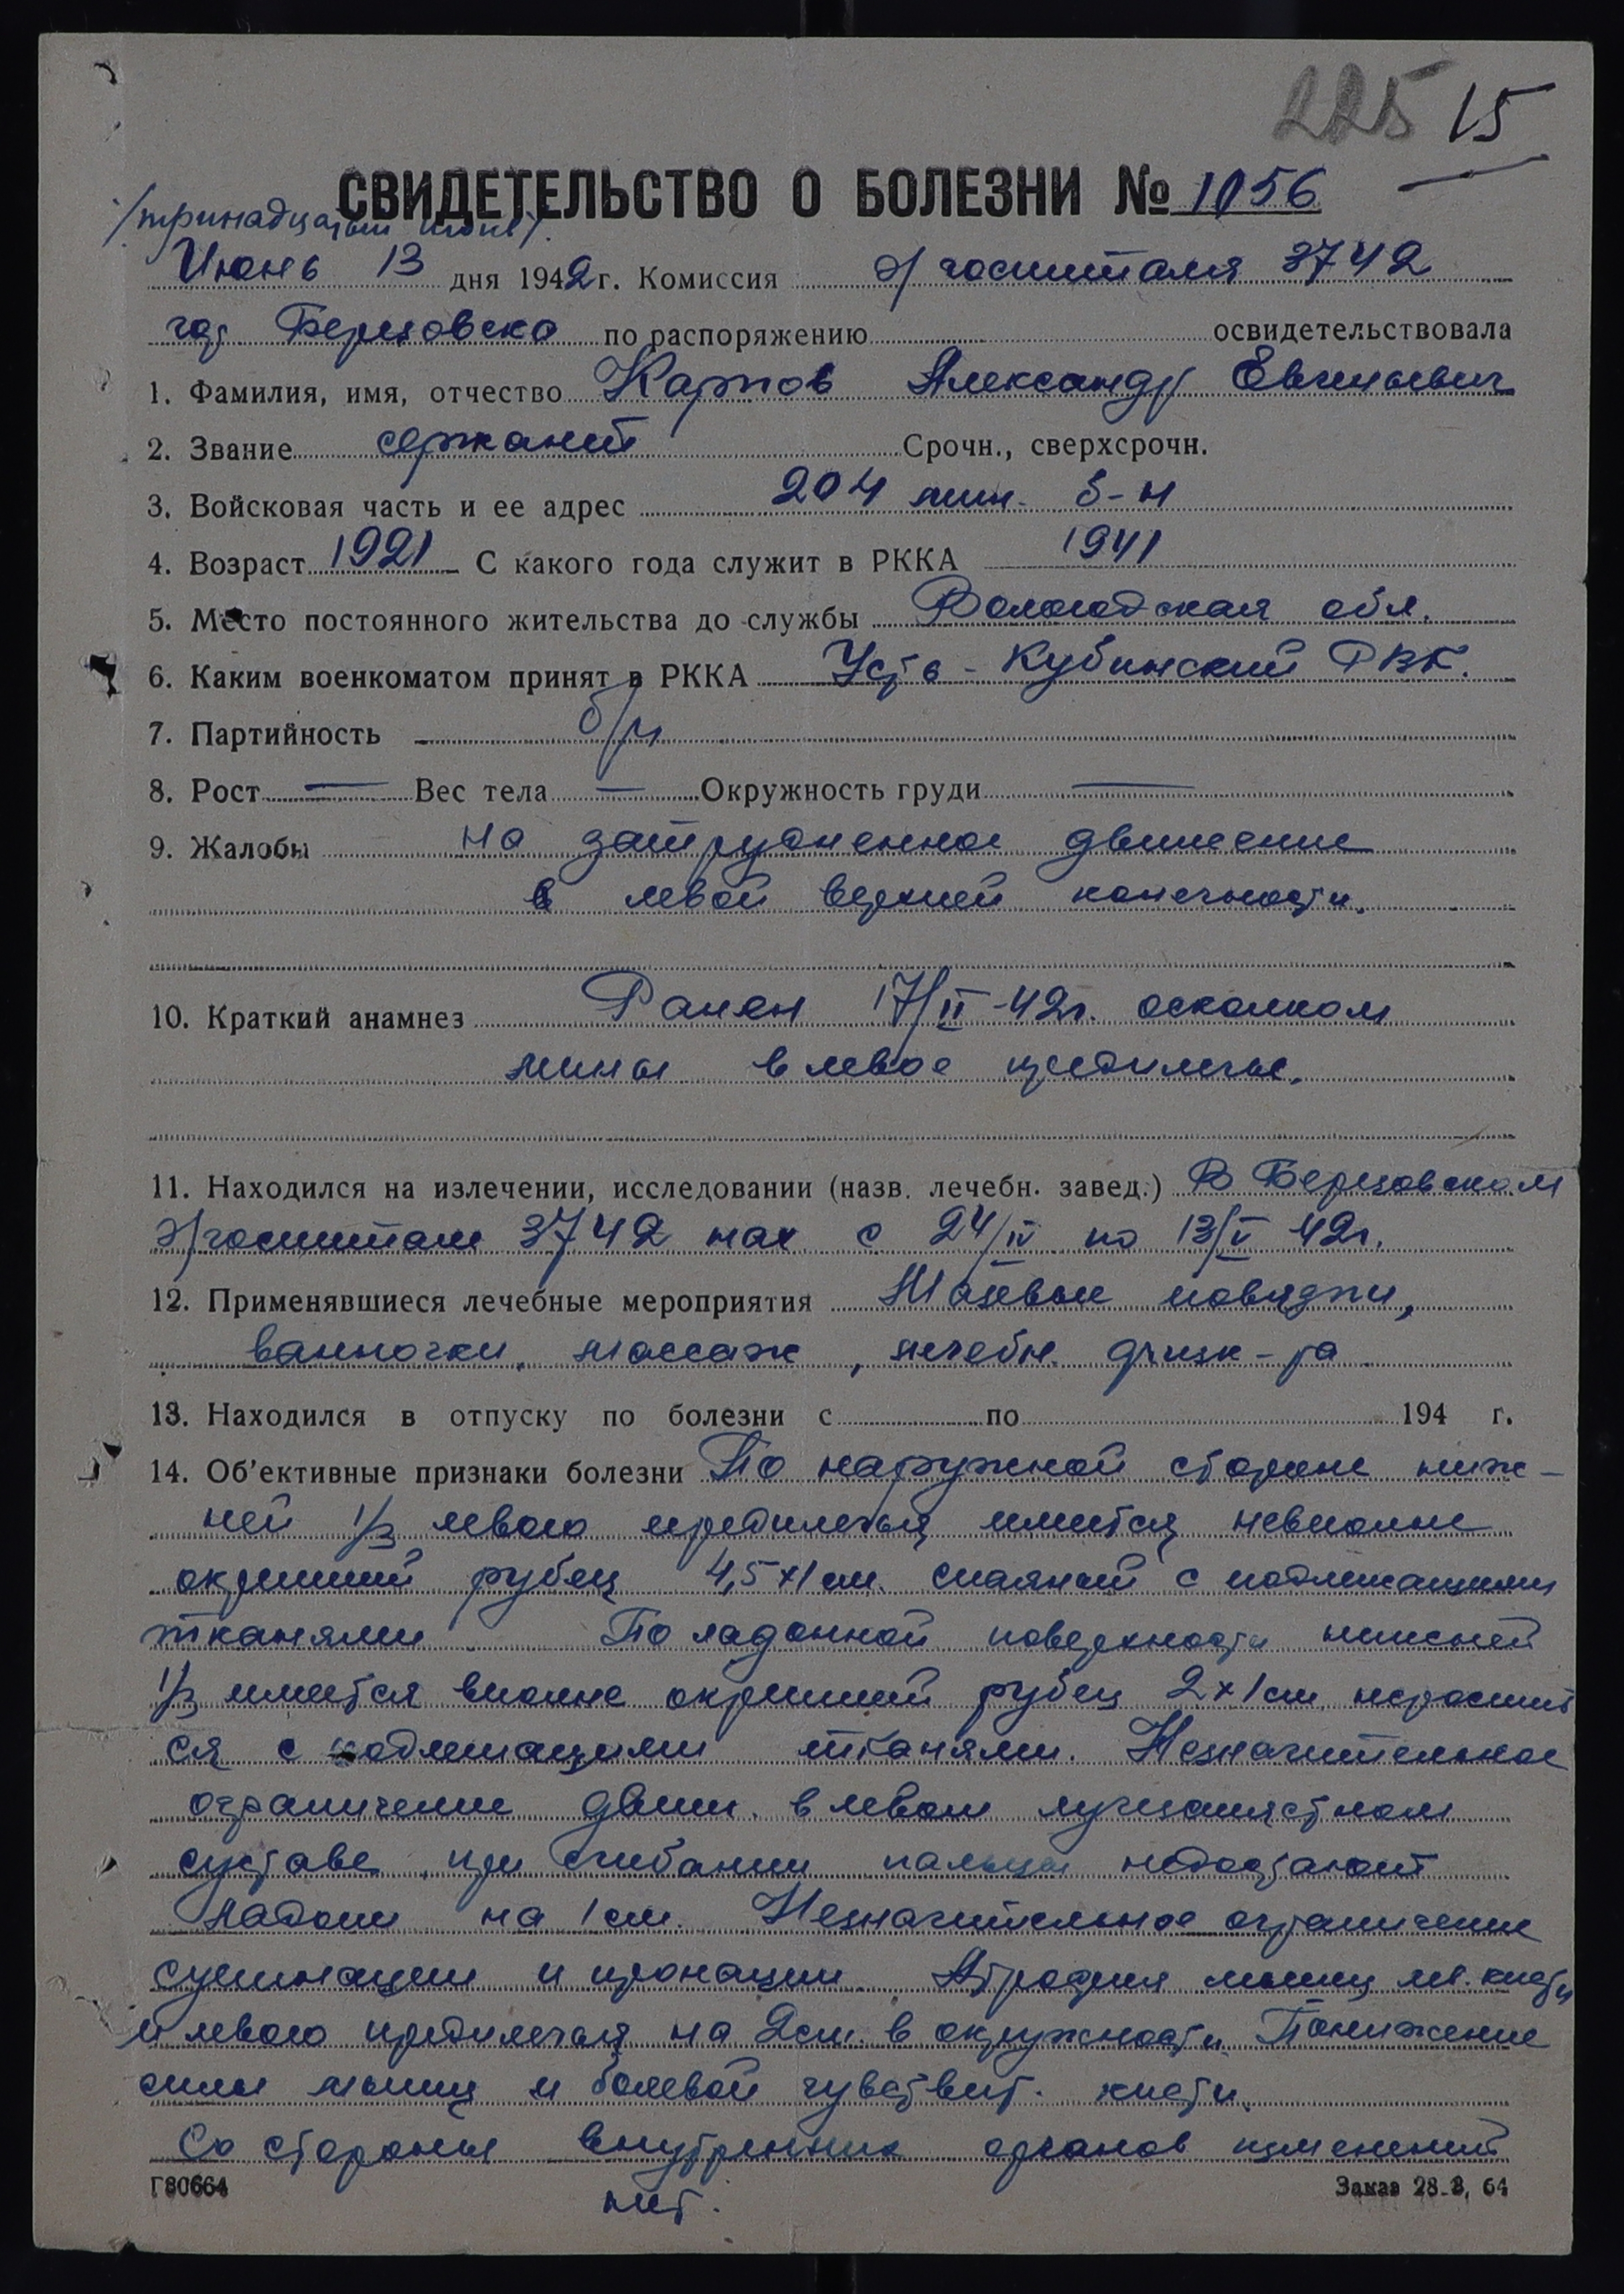 225 15
СВИДЕТЕЛЬСТВО О БОЛЕЗНИ № 1056
/тринадцатый июнь/.
Июнь 13 дня 1942 г. Комиссия э/госпиталя 3742
гор Березовска по распоряжению освидетельствовала
1. Фамилия, имя, отчество Карпов Александр Евгеньевич
2. Звание сержант Срочн., сверхсрочн.
3. Войсковая часть и ее адрес 204 мин. б-н
4. Возраст 1921 С какого года служит в РККА 1941
5. Место постоянного жительства до службы Вологодская обл.
6. Каким военкоматом принят в РККА Усть-Кубинский РВК.
7. Партийность б/п
8. Рост — Вес тела — Окружность груди —
9. Жалобы на затрудненное движение
в левой верхней конечности.
10. Краткий анамнез Ранен 17/II-42г. осколком
мины в левое предплечье.
11. Находился на излечении, исследовании (назв. лечебн. завед.) В Березовском
э/госпитале 3742 нах с 24/IV по 13/V 42г.
12. Применявшиеся лечебные мероприятия Мазевые повязки,
ванночки, массаж, лечебн. физк-ра
13. Находился в отпуску по болезни с по 194 г.
14. Об'ективные признаки болезни По наружной стороне ниж-
ней 1/3 левого предплечья имеется невполне
окрепший рубец 4,5×1 см. спаяный с подлежащими
тканями. По ладонной поверхности нижней
1/3 имеется вполне окрепший рубец 2×1 см
ся с подлежащими тканями. Незначительное
ограничение движ. в левом лучезапястном
суставе, при сгибании пальцы недостают
ладони на 1 см. Незначительное ограничение
супинации и пронации. Атрофия мышц лев. кисти
и левого предплечья на 2см. в окружности. Понижение
силы мышц и болевой чувствит. кисти.
Со стороны внутренних органов изменений
нет.
Г80664 Заказ 28-3, 64